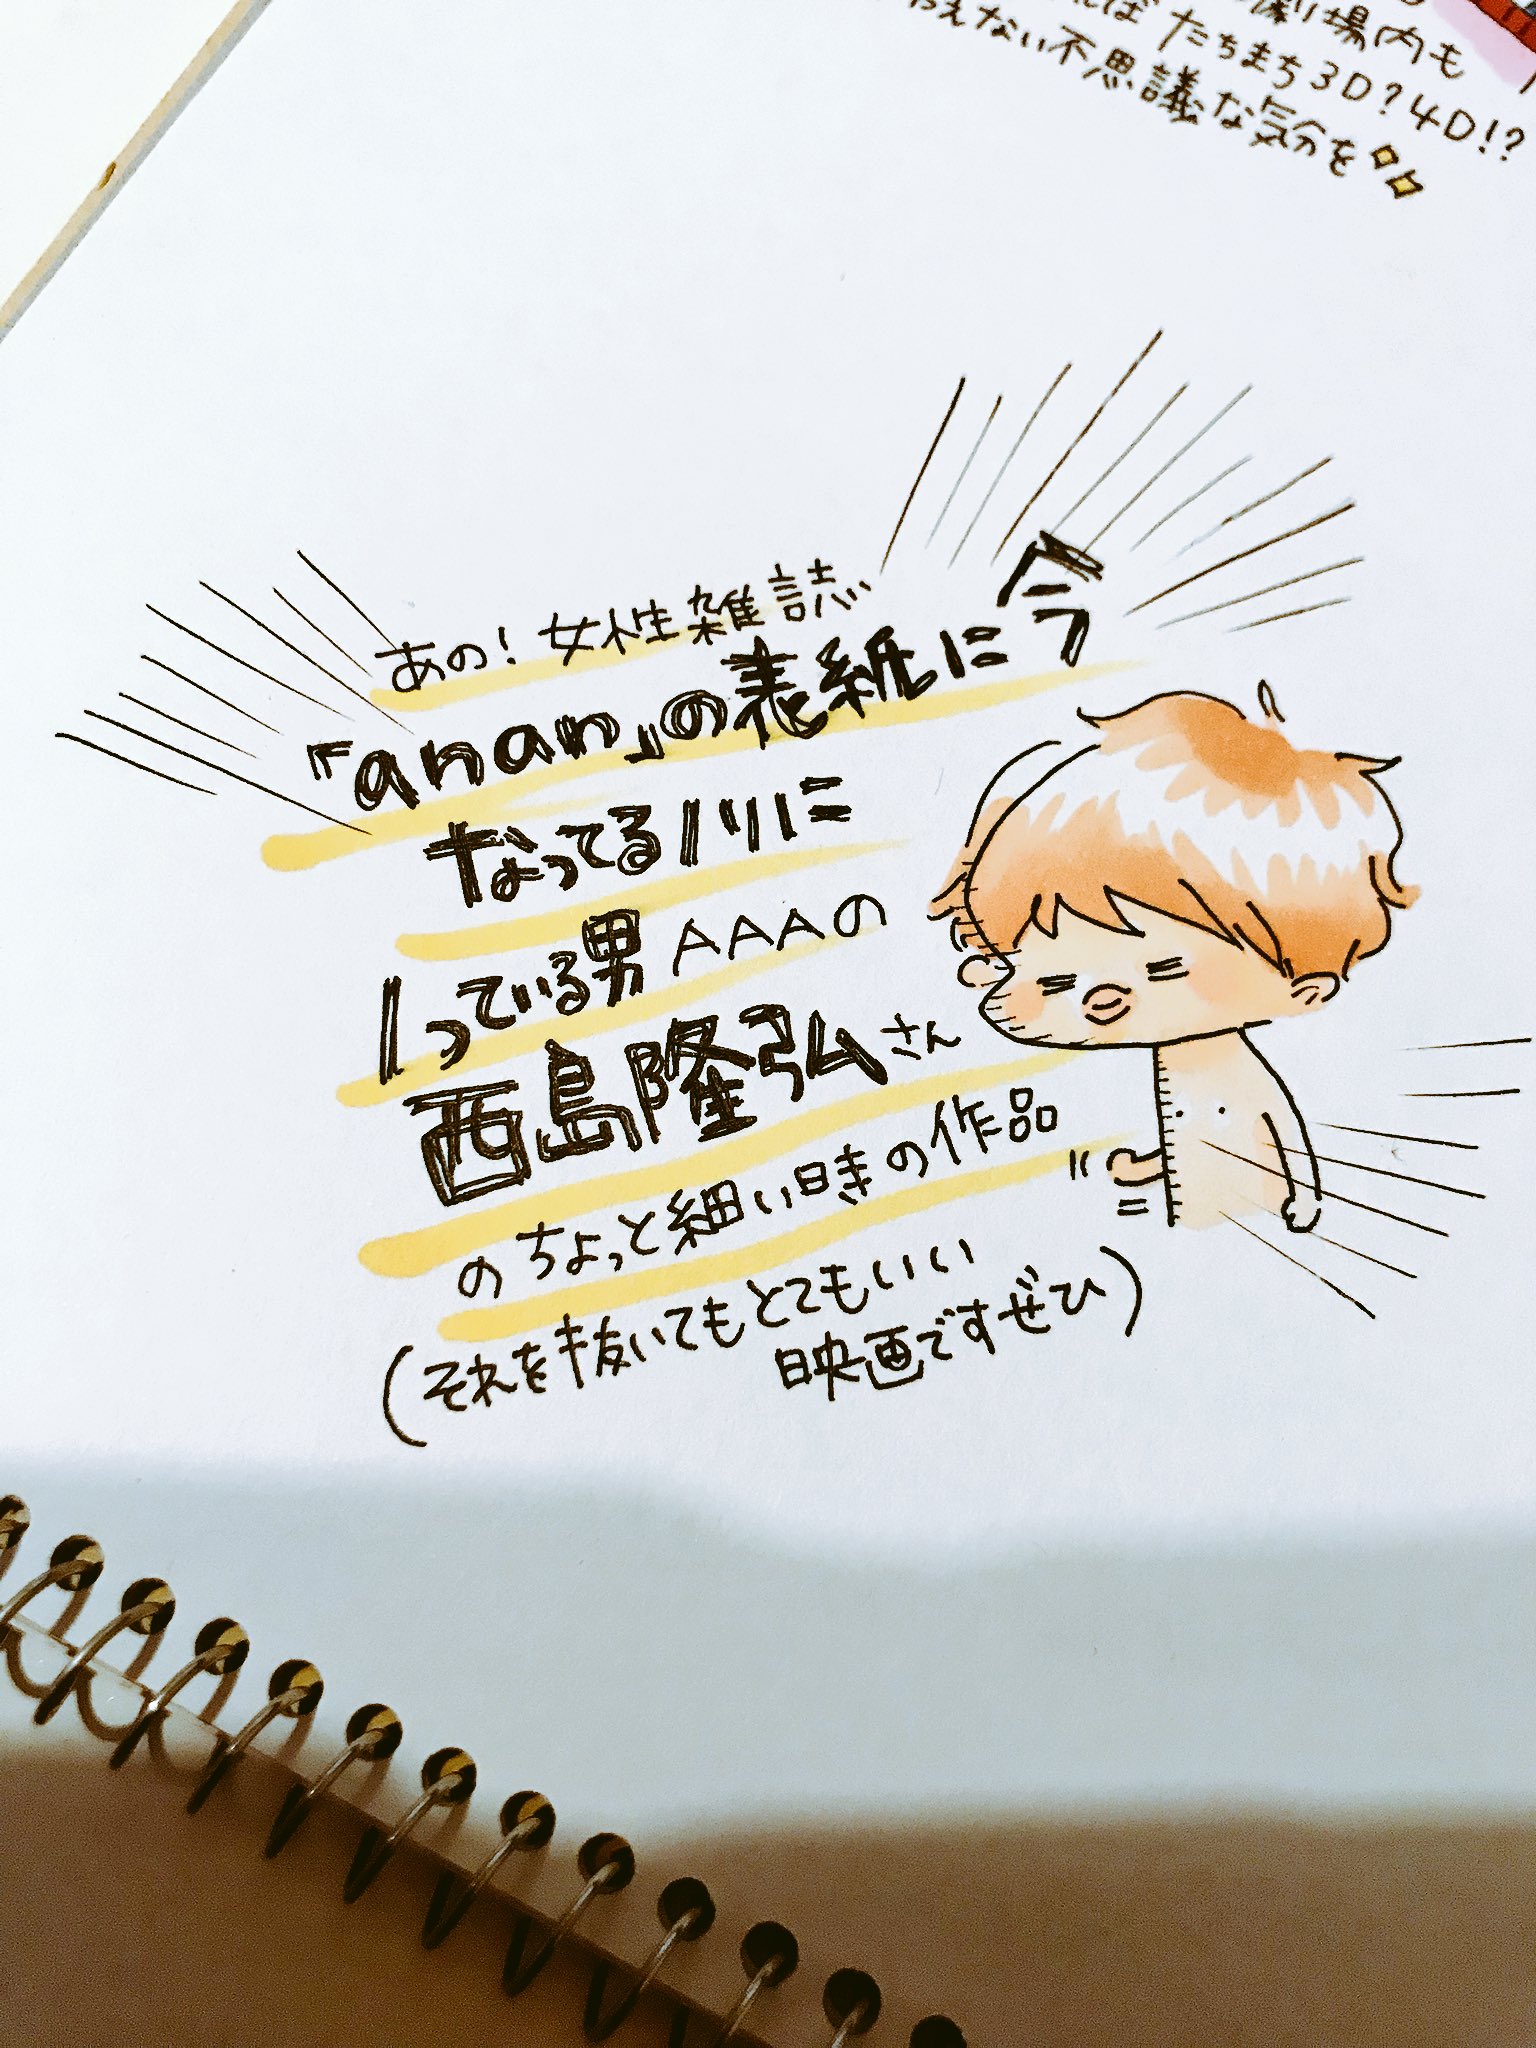 劇場内も
ばたちまち3D?4D!?
えない不思議な気分を
あの!女性雑誌
「anan」の表紙に今
なってるノリに
ノっている男AAAの
西島隆弘さん
のちょっと細い時の作品
(それを抜いてもとてもいい
映画ですぜひ)